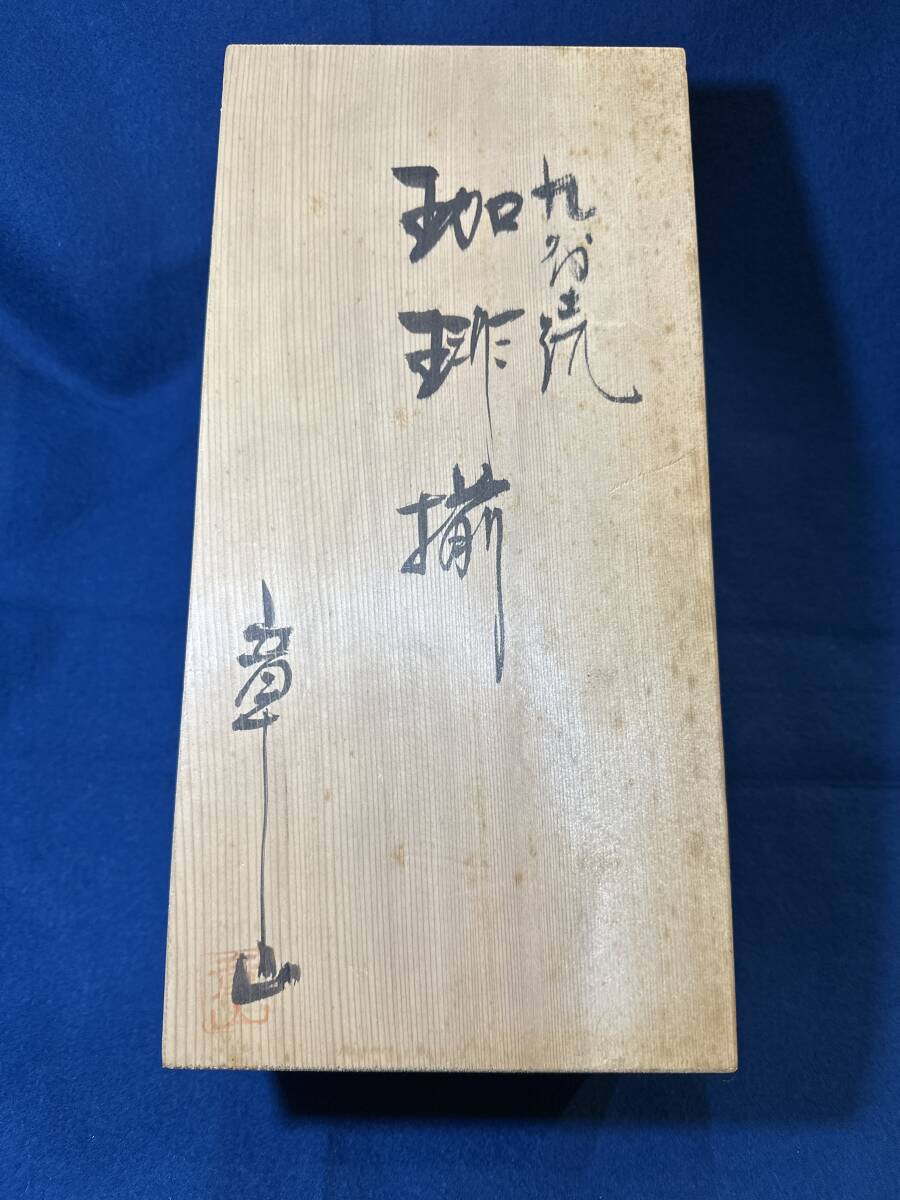 九谷焼
珈琲揃
章山